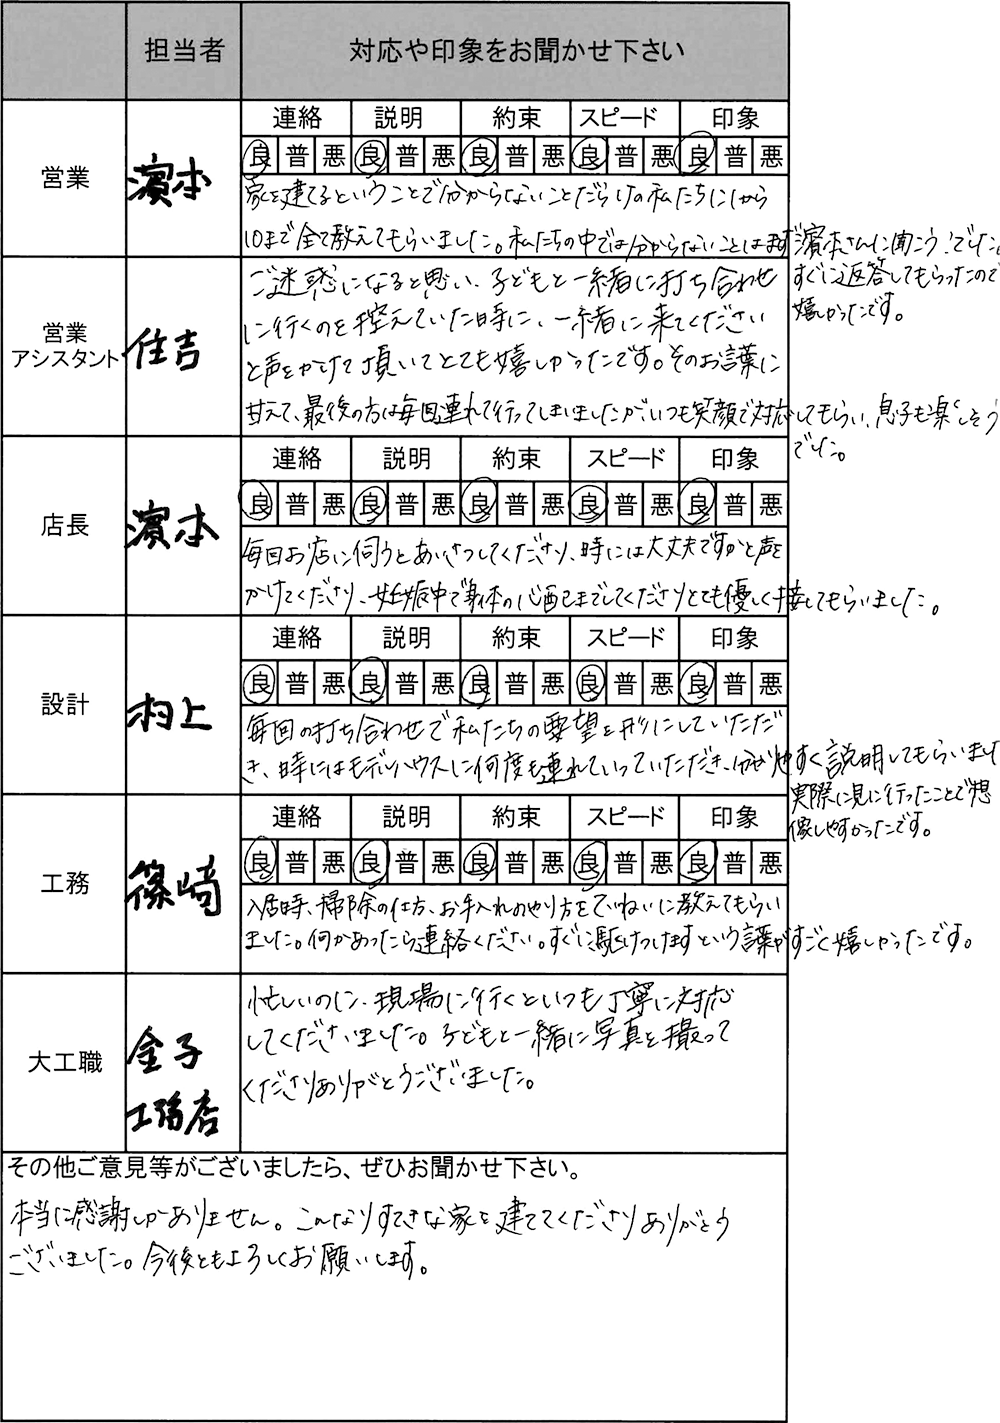 担当者 対応や印象をお聞かせ下さい
営業 濱本
連絡 説明 約束 スピード 印象
良 普 悪 良 普 悪 良 普 悪 良 普 悪 良 普 悪
家を建てるということで分からないことだらけの私たちに1から
10まで全て教えてもらいました。私たちの中では分からないことはまず濱本さんに聞こう!でした。
すぐに返答してもらったので
嬉しかったです。
営業
アシスタント 住吉
ご迷惑になると思い、子どもと一緒に打ち合わせ
に行くのを控えていた時に、一緒に来てください
と声をかけて頂いてとても嬉しかったです。そのお言葉に
甘えて、最後の方は毎回連れて行ってしまいましたが、いつも笑顔で対応してもらい、息子も楽しそう
でした。
店長 濱本
連絡 説明 約束 スピード 印象
良 普 悪 良 普 悪 良 普 悪 良 普 悪 良 普 悪
毎回お店に伺うとあいさつしてくださり、時には大丈夫ですかと声を
かけてくださり、妊娠中で身体の心配までしてくださりとても優しく接してもらいました。
設計 村上
連絡 説明 約束 スピード 印象
良 普 悪 良 普 悪 良 普 悪 良 普 悪 良 普 悪
毎回の打ち合わせで私たちの要望を形にしていただ
き、時にはモデルハウスに何度も連れていっていただき、分かりやすく説明してもらいました
実際に見に行ったことで想
像しやすかったです。
工務 篠崎
連絡 説明 約束 スピード 印象
良 普 悪 良 普 悪 良 普 悪 良 普 悪 良 普 悪
入居時、掃除の仕方、お手入れのやり方をていねいに教えてもらい
ました。何かあったら連絡ください。すぐに駆けつけますという言葉がすごく嬉しかったです。
大工職 金子
工務店
忙しいのに、現場に行くといつも丁寧に対応
してくださいました。子どもと一緒に写真を撮って
くださりありがとうございました。
その他ご意見等がございましたら、ぜひお聞かせ下さい。
本当に感謝しかありません。こんなにすてきな家を建ててくださりありがとう
ございました。今後ともよろしくお願いします。